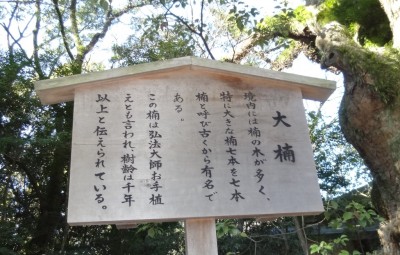 大楠
境内には楠の木が多く、
特に大きな楠七本を七本
楠と呼び古くから有名で
ある。
この楠は弘法大師お手植
えとも言われ、樹齢は千年
以上と伝えられている。